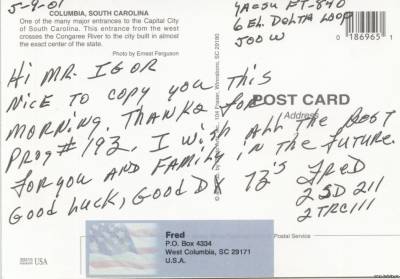 5-9-01
COLUMBIA, SOUTH CAROLINA
One of the many major entrances to the Capital City
of South Carolina. This entrance from the west
crosses the Congaree River to the city built in almost
the exact center of the state.
Photo by Ernest Ferguson
YAESU FT-840
6 EL. DELTA LOOP
500W
0 186965 1
Hi MR. IGOR
NICE TO COPY YOU THIS
MORNING. THANKS FOR
PROG #192. I WISH ALL THE BEST
FOR YOU AND FAMILY IN THE FUTURE.
GOOD LUCK, GOOD DX 73'S FRED
2SD211
2TRC111
POST CARD
Fred
P.O. Box 4334
West Columbia, SC 29171
U.S.A.
Postal Service
USA